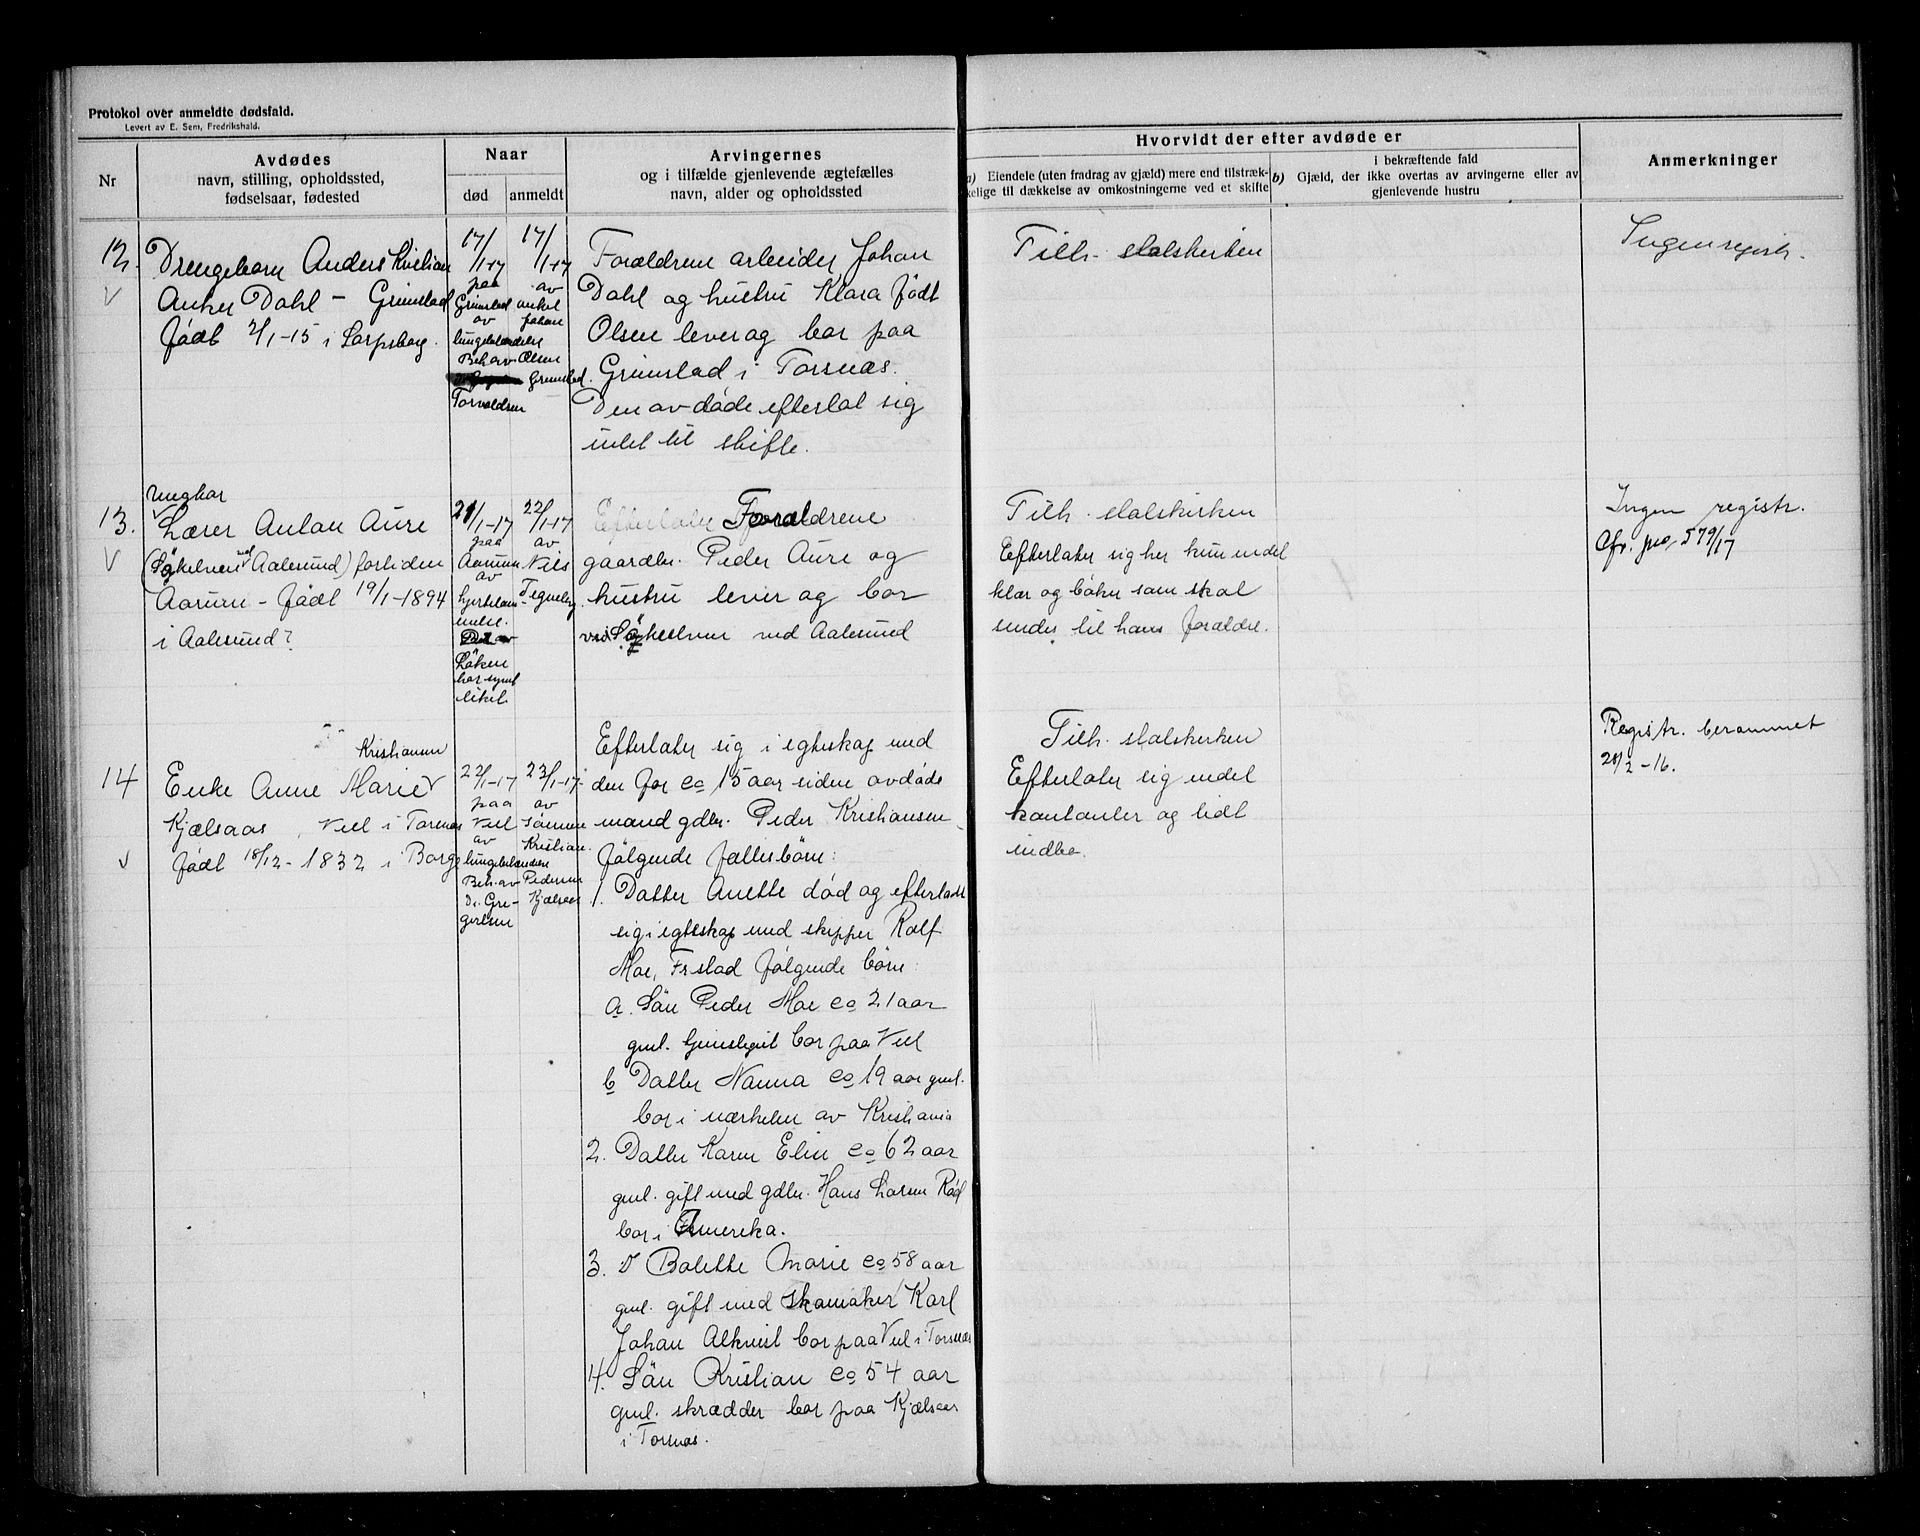 Protokol over anmeldte dødsfald.
Levert av E. Sem, Fredrikshald.
Nr
Avdødes
navn, stilling, opholdssted,
fødselsaar, fødested
Naar
død
anmeldt
Arvingernes
og i tilfælde gjenlevende ægtefælles
navn, alder og opholdssted
Hvorvidt der efter avdøde er
a) Eiendele (uten fradrag av gjæld) mere end tilstræk-
kelige til dækkelse av omkostningerne ved et skifte
i bekræftende fald
b) Gjæld, der ikke overtas av arvingerne eller av
gjenlevende hustru
Anmerkninger
12.
Drengebarn Anders Kristian
Anker Dahl - Grimstad
født 2/1-15 i Sarpsborg.
17/1-17
paa
Grimstad
av
lungebetændelse
Beh av
Torvaldsen
17/1-17
av
onkel
Johan
Olsen
Grimstad.
Forældrene arbeider Johan
Dahl og hustru Klara født
Olsen lever og bor paa
Grimstad i Torsnæs.
Den avdøde efterlot sig
intet til skifte.
Tilh. statskirken
Ingen registr.
13.
Ungkar
Lærer Anton Aure
(Søkelven ved Aalesund) fortiden
Aarum - født 19/1-1894
i Aalesund?
21/1-17
paa
Aarum
av
hjertelam-
melse.
Løken
har synet
liket
22/1-17
av
Nils
Tegneby.
Efterlater Forældrene
gaardbr. Peder Aure og
hustru lever og bor
ved Søkelven ved Aalesund
Tilh. statskirken
Efterlater sig her kun endel
klær og bøker som skal
sendes til hans forældre.
Ingen registr.
Afv. jno, 579/17
14
Kristiansen
Enke Anne Marie
Kjælsaas, Veel i Torsnæs
født 18/12-1832 i Borge
22/1-17
paa
Veel
av
lungebetændelse
Beh. av
Dr. Gre-
gersen
23/1-17
av
sønnen
Kristian
Pedersen
Kjælsaas
Efterlater sig i egteskap med
den for ca 15 aar siden avdøde
mand gdbr. Peder Kristiansen
følgende fællesbørn:
1. Datter Anette død og efterlatt
sig i egteskap med skipper Rolf
Moe, Frstad følgende børn:
a. Søn Peder Moe ca 21 aar
gml. bor paa Veel
b Datter Nanna ca 19 aar gml.
bor i nærheten av Kristiania
2. Datter Karen Elin ca 62 aar
gml. gift med gdbr. Hans Larsen Rød
bor i Amerika.
3. D Bolette Marie ca 58 aar
gml. gift med skomaker Karl
Johan Alkvist bor paa Veel i Torsnæs
4. Søn Kristian ca 54 aar
gml. skrædder bor paa Kjælsaas
i Torsnæs.
Tilh. statskirken
Efterlater sig endel
kontanter og lidt
indbo.
Registr. berammet
28/2-16.